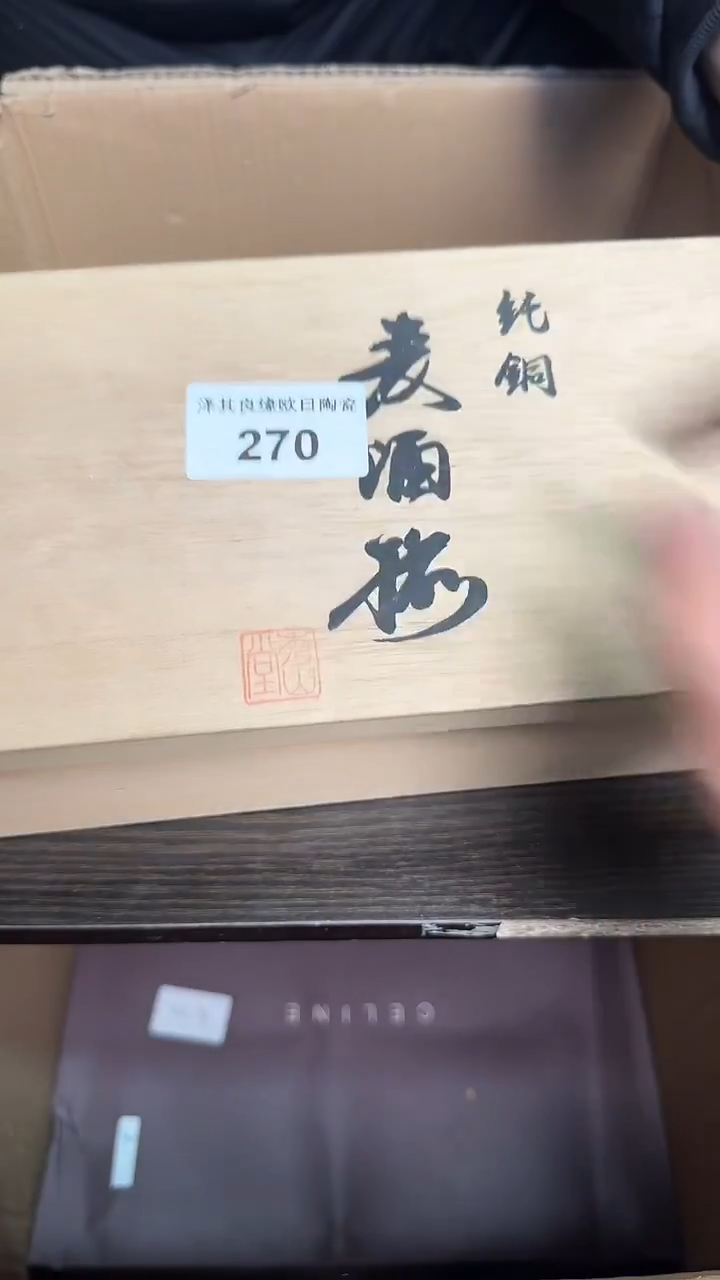 純銅
麦酒揃
洋其良缘欧日陶瓷
270
CELINE